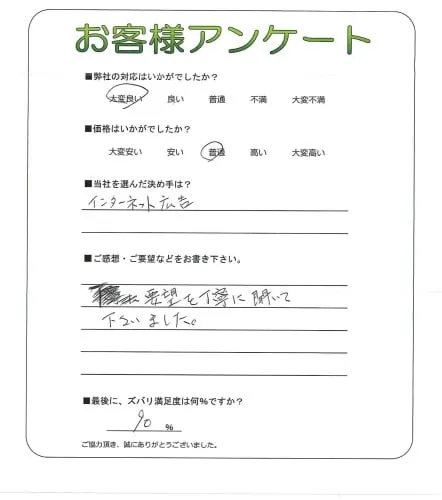 お客様アンケート
■弊社の対応はいかがでしたか?
大変良い 良い 普通 不満 大変不満
■価格はいかがでしたか?
大変安い 安い 普通 高い 大変高い
■当社を選んだ決め手は?
インターネット広告
■ご感想・ご要望などをお書き下さい。
要望を丁寧に聞いて
下さいました。
■最後に、ズバリ満足度は何%ですか?
90 %
ご協力頂き、誠にありがとうございました。